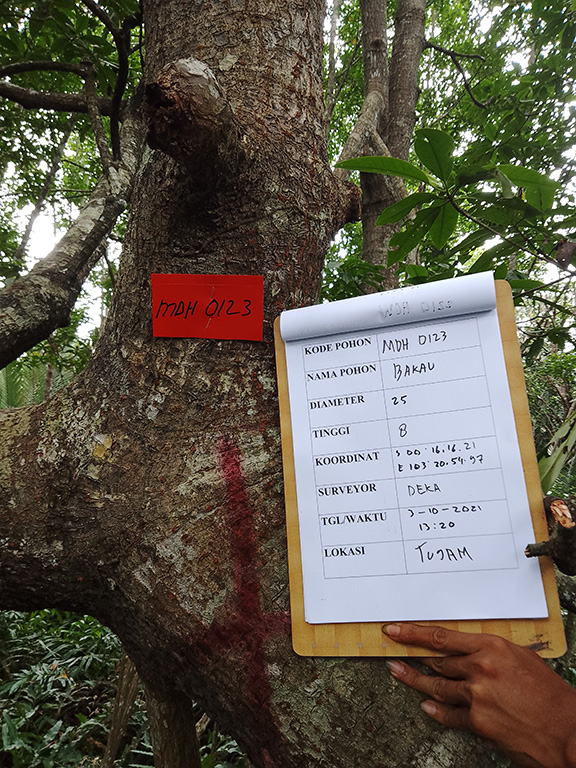 MDH 0123
KODE POHON MDH 0123
NAMA POHON BAKAU
DIAMETER 25
TINGGI 8
KOORDINAT S 00 : 16.16.21
E 103 : 20.54.97
SURVEYOR DEKA
TGL/WAKTU 3-10-2021
13:20
LOKASI TUJAM